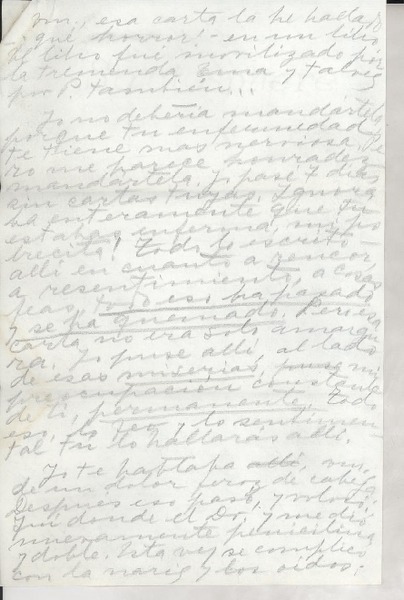 vm., esa carta la he hallado
- ¡qué horror! - en un libro
El libro fué movilizado por
la tremenda Ema y talvez
por P. también...
Yo no debería mandártela,
porque tu enfermedad
te tiene mas nerviosa. Pe-
ro me parece honradez
mandártela. Yo pasé 7 días
sin cartas tuyas. Ignora
ba enteramente que tu
estabas enferma, mi po
brecita! Todo lo escrito
allí en cuanto a rencor
a resentimiento, a cosas
feas, todo eso ha pasado
y se ha quemado. Pero esa
carta no era solo amargu
ra. Yo puse allí, al lado
de esas miserias, mi
preocupación constante
de ti, permanente. Todo
eso, lo feo y lo sentimen
tal tu lo hallarás allí.
Yo te hablaba allí, vm.,
de un dolor feroz de cabeza
después eso pasó, y volvió.
Fui donde el Dr. y me dió
nuevamente penicilina
y doble. Esta vez se complicó
con la nariz y los oídos;